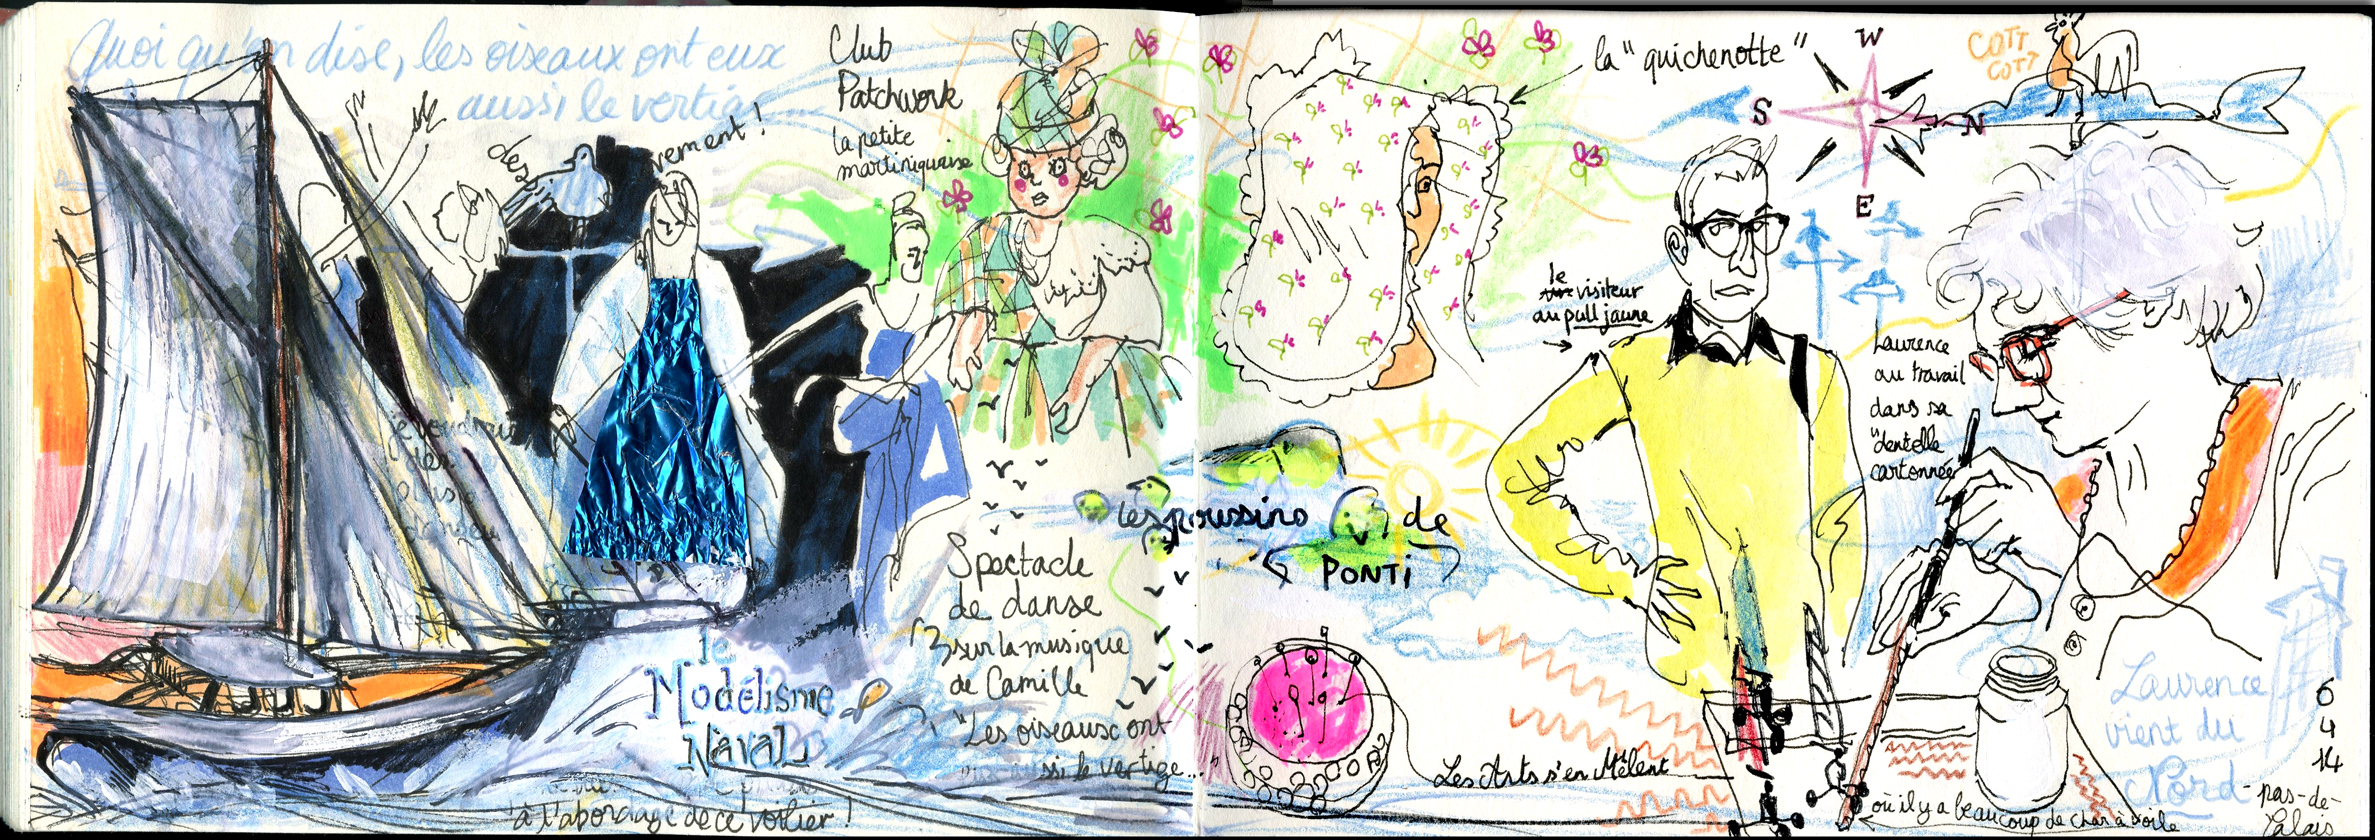 Quoi qu'on dise, les oiseaux ont eux
aussi le vertige
Club
Patchwork
la petite
martiniquaise
je voudrais
des
Spectacle
de danse
sur la musique
de Camille
"Les oiseaux ont
aussi le vertige...
le
Modélisme
Naval
à l'abordage de ce voilier !
la "quichenotte"
W
S
N
E
COTT
COTT
le visiteur
au pull jaune
Laurence
au travail
dans sa
"dentelle
cartonnée"
les poussins de
PONTI
Les Arts s'en Mêlent
Laurence
vient du
Nord-pas-de-
Calais
où il y a beaucoup de char à voile
6
4
14